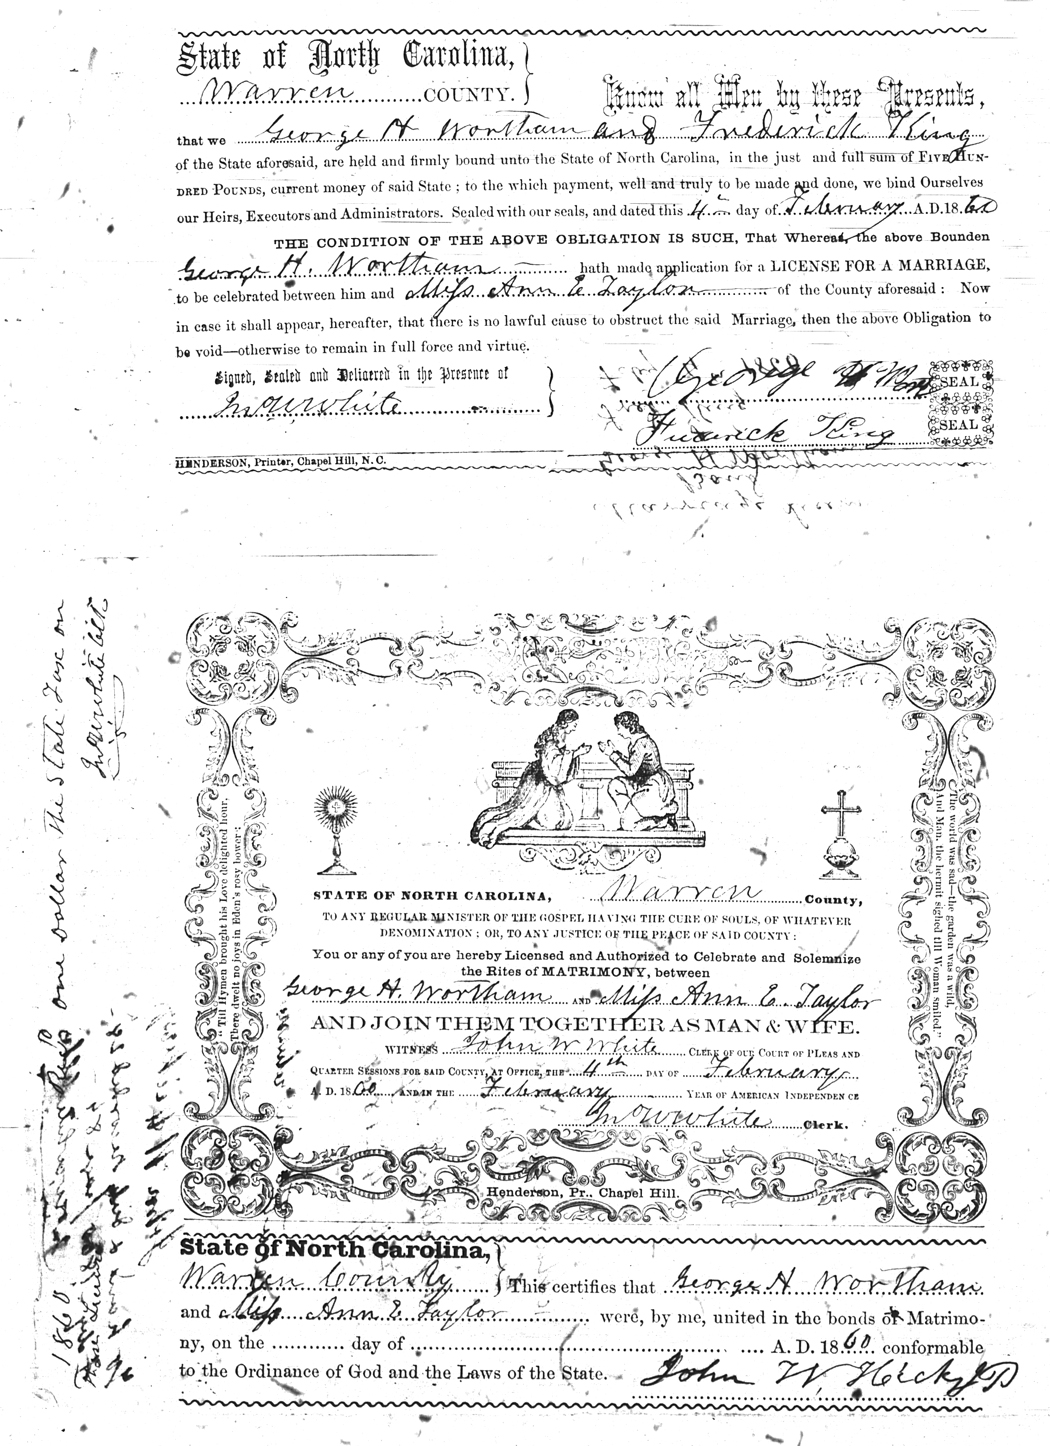 State of North Carolina,
Warren COUNTY.
Know all Men by these Presents,
that we George H Wortham and Frederick King
of the State aforesaid, are held and firmly bound unto the State of North Carolina, in the just and full sum of FIVE HUN-
DRED POUNDS, current money of said State; to the which payment, well and truly to be made and done, we bind Ourselves
our Heirs, Executors and Administrators. Sealed with our seals, and dated this 4th day of February A.D. 1860
THE CONDITION OF THE ABOVE OBLIGATION IS SUCH, That Whereas, the above Bounden
George H. Wortham hath made application for a LICENSE FOR A MARRIAGE,
to be celebrated between him and Miss Ann E Taylor of the County aforesaid: Now
in case it shall appear, hereafter, that there is no lawful cause to obstruct the said Marriage, then the above Obligation to
be void—otherwise to remain in full force and virtue.
Signed, Sealed and Delivered in the Presence of
Jno W White
George H Wort
SEAL
Frederick King
SEAL
HENDERSON, Printer, Chapel Hill, N. C.
one dollar the State Tax on
Jno W White Clk
1860
"Till Hymen brought his Love delighted hour,
There dwelt no joys in Eden's rosy bower:
"The world was sad—the garden was a wild,
And Man, the hermit sighed till Woman smiled."
STATE OF NORTH CAROLINA, Warren County,
TO ANY REGULAR MINISTER OF THE GOSPEL HAVING THE CURE OF SOULS, OF WHATEVER
DENOMINATION; OR, TO ANY JUSTICE OF THE PEACE OF SAID COUNTY:
You or any of you are hereby Licensed and Authorized to Celebrate and Solemnize
the Rites of MATRIMONY, between
George H. Wortham AND Miss Ann E. Taylor
AND JOIN THEM TOGETHER AS MAN & WIFE.
WITNESS John W White CLERK OF OUR COURT OF PLEAS AND
QUARTER SESSIONS FOR SAID COUNTY, AT OFFICE, THE 4th DAY OF February
A. D. 1860 AND IN THE February YEAR OF AMERICAN INDEPENDENCE
Jno W White Clerk.
Henderson, Pr., Chapel Hill.
State of North Carolina,
Warren County This certifies that George H Wortham
and Miss Ann E Taylor were, by me, united in the bonds of Matrimo-
ny, on the day of A. D. 1860 conformable
to the Ordinance of God and the Laws of the State. John W. Hicks JP